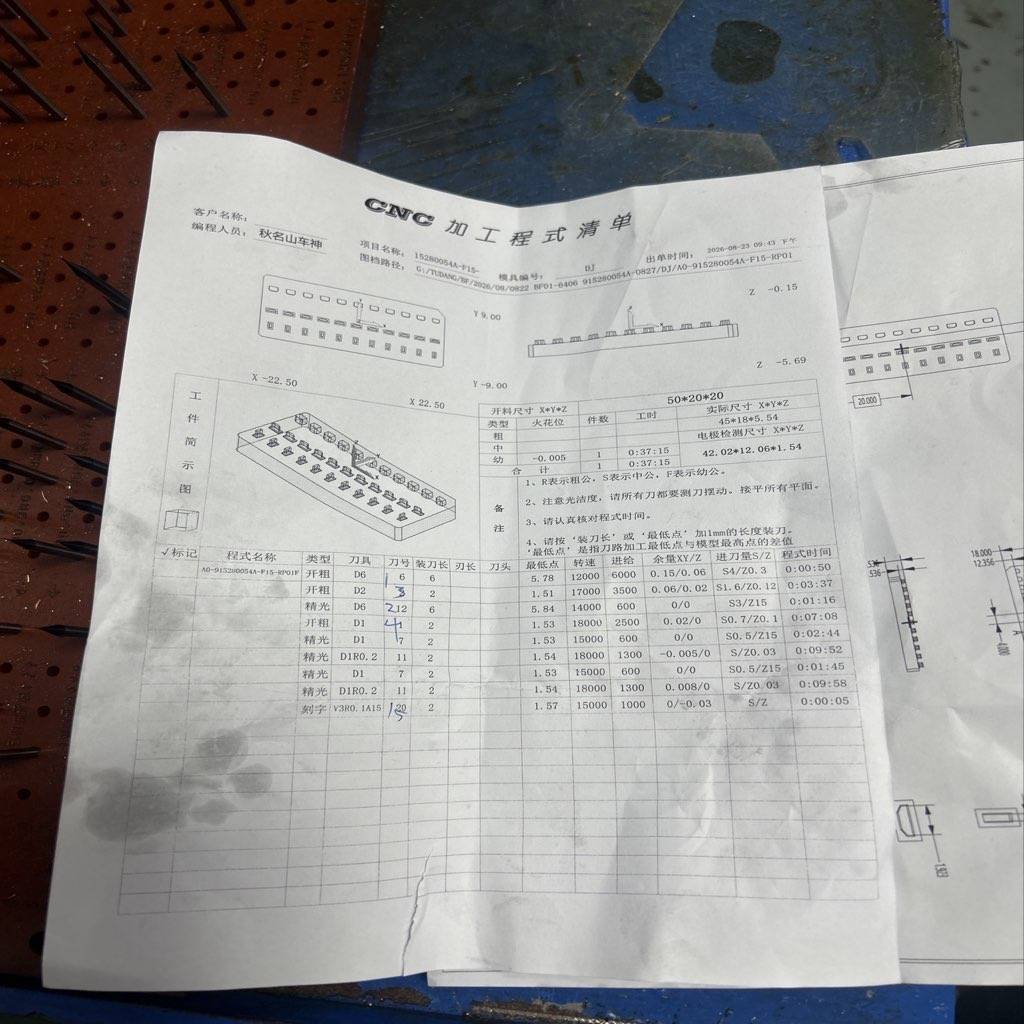 CNC 加工程式清单
客户名称:
编程人员: 秋名山车神
项目名称: 15280054A-F15- 模具编号: DJ 出单时间: 2026-08-23 09:43 下午
图档路径: G:/TUDANG/BF/2026/08/0822 BF01-6406 915280054A-0827/DJ/A0-915280054A-F15-RP01
Y 9.00
Z -0.15
Z -5.69
X -22.50
X 22.50
Y -9.00
工件简示图
开料尺寸 X*Y*Z 50*20*20
类型 火花位 件数 工时 实际尺寸 X*Y*Z
粗 45*18*5.54
中 电极检测尺寸 X*Y*Z
幼 -0.005 1 0:37:15 42.02*12.06*1.54
合 计 1 0:37:15
备注
1、R表示粗公，S表示中公，F表示幼公。
2、注意光洁度，请所有刀都要测刀摆动。接平所有平面。
3、请认真核对程式时间。
4、请按‘装刀长’或‘最低点’加1mm的长度装刀。
‘最低点’是指刀路加工最低点与模型最高点的差值
√标记 程式名称 类型 刀具 刀号 装刀长 刃长 刀头 最低点 转速 进给 余量XY/Z 进刀量S/Z 程式时间
A0-915280054A-F15-RP01F 开粗 D6 1 6 6 5.78 12000 6000 0.15/0.06 S4/Z0.3 0:00:50
开粗 D2 3 2 1.51 17000 3500 0.06/0.02 S1.6/Z0.12 0:03:37
精光 D6 2 12 6 5.84 14000 600 0/0 S3/Z15 0:01:16
开粗 D1 4 2 1.53 18000 2500 0.02/0 S0.7/Z0.1 0:07:08
精光 D1 7 2 1.53 15000 600 0/0 S0.5/Z15 0:02:44
精光 D1R0.2 11 2 1.54 18000 1300 -0.005/0 S/Z0.03 0:09:52
精光 D1 7 2 1.53 15000 600 0/0 S0.5/Z15 0:01:45
精光 D1R0.2 11 2 1.54 18000 1300 0.008/0 S/Z0.03 0:09:58
刻字 V3R0.1A15 20 15 2 1.57 15000 1000 0/-0.03 S/Z 0:00:05
20.000
.536
18.000
12.356